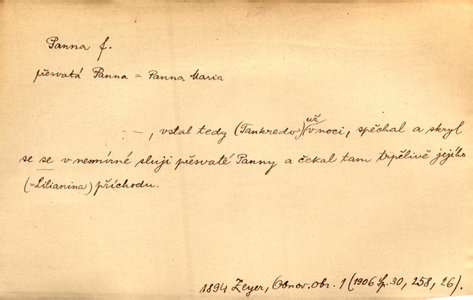 Panna f.
přesvatá Panna = Panna Maria
—, vstal tedy (Tankredo) už v noci, spěchal a skryl
se se v nesmírné sluji přesvaté Panny a čekal tam trpělivě jejího
(=Lilianina) příchodu.
1894 Zeyer, Obnov. obr. 1 (1906 Sp. 30, 258, 26).